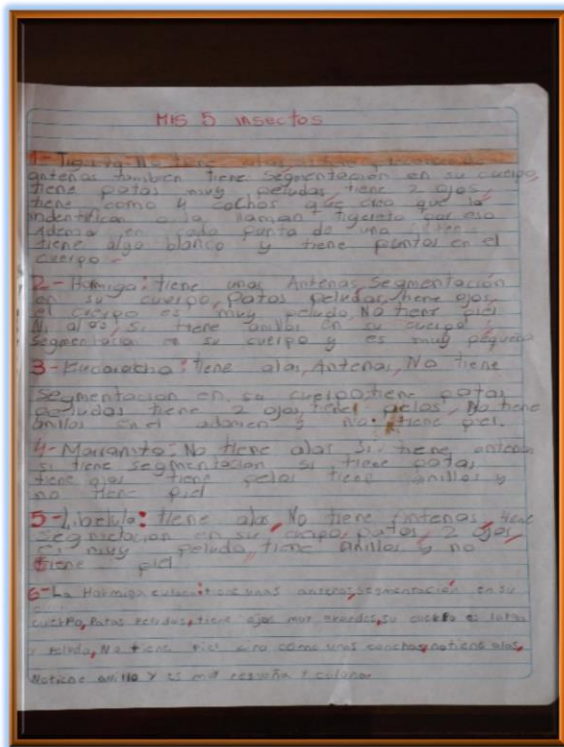 MIS 5 insectos
1- Tigrita no tiene alas,
antenas tambien tiene Segmentación en su cuerpo,
tiene patas muy peludas, tiene 2 ojos,
tiene como 4 cachos que creo que la
indentifican o la llaman tigereto por eso
Ademas en cada punta de una
tiene algo blanco y tiene puntos en el
cuerpo.
2- Homiga: tiene unas Antenas, Segmentación
en su cuerpo, Patas peludas, tiene ojos,
el cuerpo es muy peludo, No tiene piel
Ni alas, si tiene anillos en su cuerpo y
Segmentacion en su cuerpo y es muy pequeña
3- Kucaracha: tiene alas, Antenas, No tiene
segmentacion en su cuerpo tiene patas
peludas tiene 2 ojos, tiene pelos, No tiene
anillos en el adomen y no tiene piel.
4- Marranito: No tiene alas Si tiene antenas
si tiene segmentacion si tiene patas
tiene ojos tiene pelos tiene anillos y
no tiene piel
5- Libelula: tiene alas, No tiene Antenas, tiene
segmetacion en su cuerpo, patas, 2 ojos,
es muy peluda, tiene anillos y no
tiene piel
6- La Hormiga culona: tiene unas antenas, segmentación en su
cuerpo, Patas Peludas, tiene ojos muy grandes, su cuerpo es largo
y Peludo, No tiene Piel sino como unas conchas, no tiene alas,
No tiene anillo y es muy pequeña y culona.